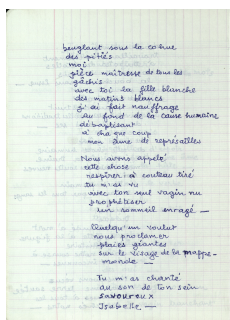 beuglant sous la cohue
des pitiés
moi
pièce maîtresse de tous les
gâchis
avec toi la fille blanche
des matins blancs
j'ai fait naufrage
au fond de la cause humaine
débaptisant
à chaque coup
mon âme de représailles
Nous avons appelé
cette chose
respirer à couteau tiré
tu m'as vu
avec ton seul vagin nu
prophétiser
un sommeil enragé —
Quelqu'un voulut
nous proclamer
plaies géantes
sur le visage de la mappe-
monde —
Tu m'as chanté
au son de ton sein
savoureux
Isabelle —